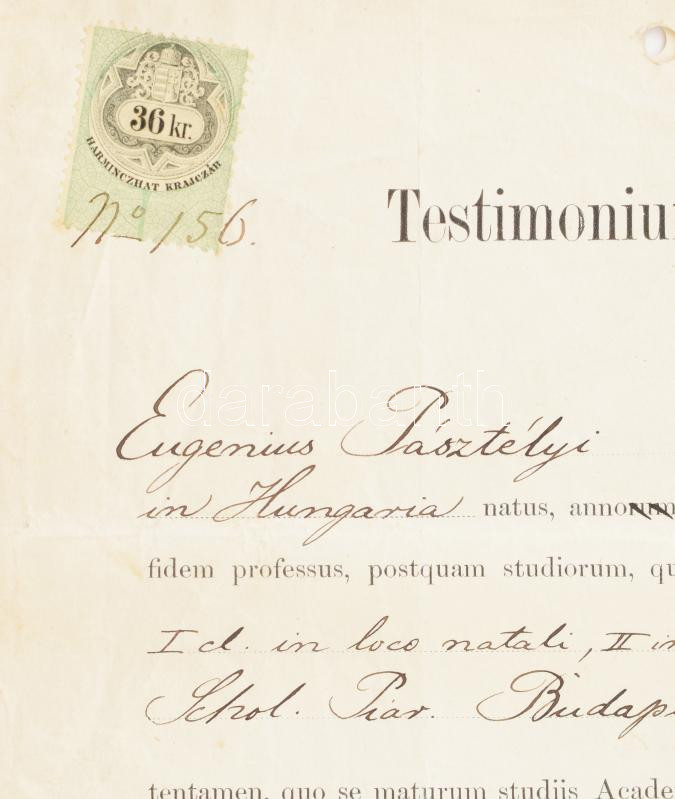 36 kr.
HARMINCZHAT KRAJCZÁR
No 156.
Testimoniu
darabanth
Eugenius Pásztélyi
in Hungaria natus, annorum
fidem professus, postquam studiorum, qu
I cl. in loco natali, II in
Schol. Piar. Budap
tentamen, quo se maturum studiis Acade